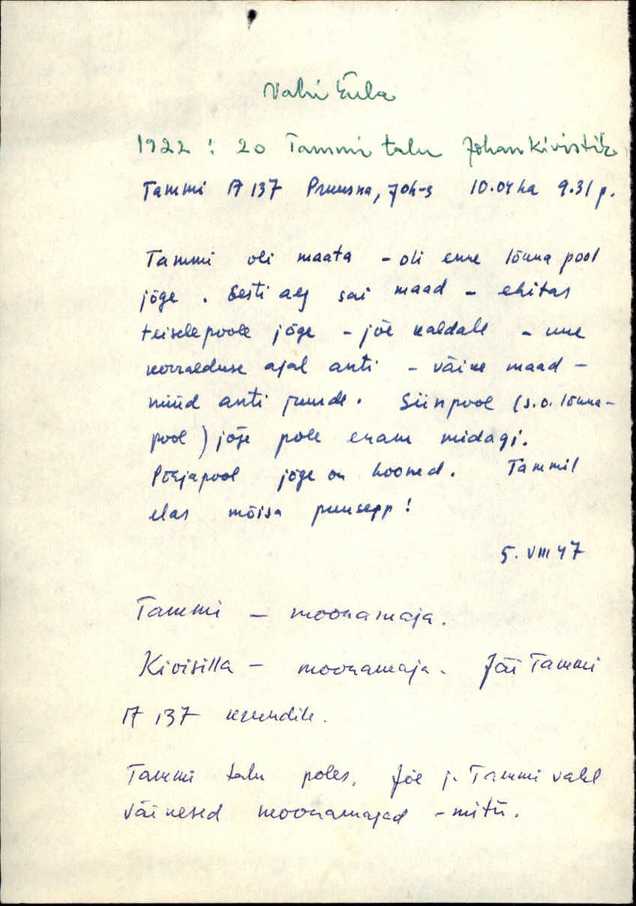 Vahi küla
1922: 20 Tammi talu Johan Kivistik
Tammi A 137 Pruusna, Joh-s 10.04 ha 9.31 p.
Tammi oli maata - oli enne lõuna pool
jõge. Eesti aeg sai maad - ehitas
teisele poole jõge - jõe kaldale - enne
korralduse ajal anti - väike maad -
nüüd anti juurde. Siinpool (s.o. lõuna-
pool) jõge pole enam midagi.
Põhjapool jõge on hooned. Tammil
elas mõisa puusepp!
5. VIII 47
Tammi - moonamaja.
Kivisilla - moonamaja. Jäi Tammi
A 137 krundile.
Tammi talu poles. Jõe j. Tammi vahel
väikesed moonamajad - mitu.